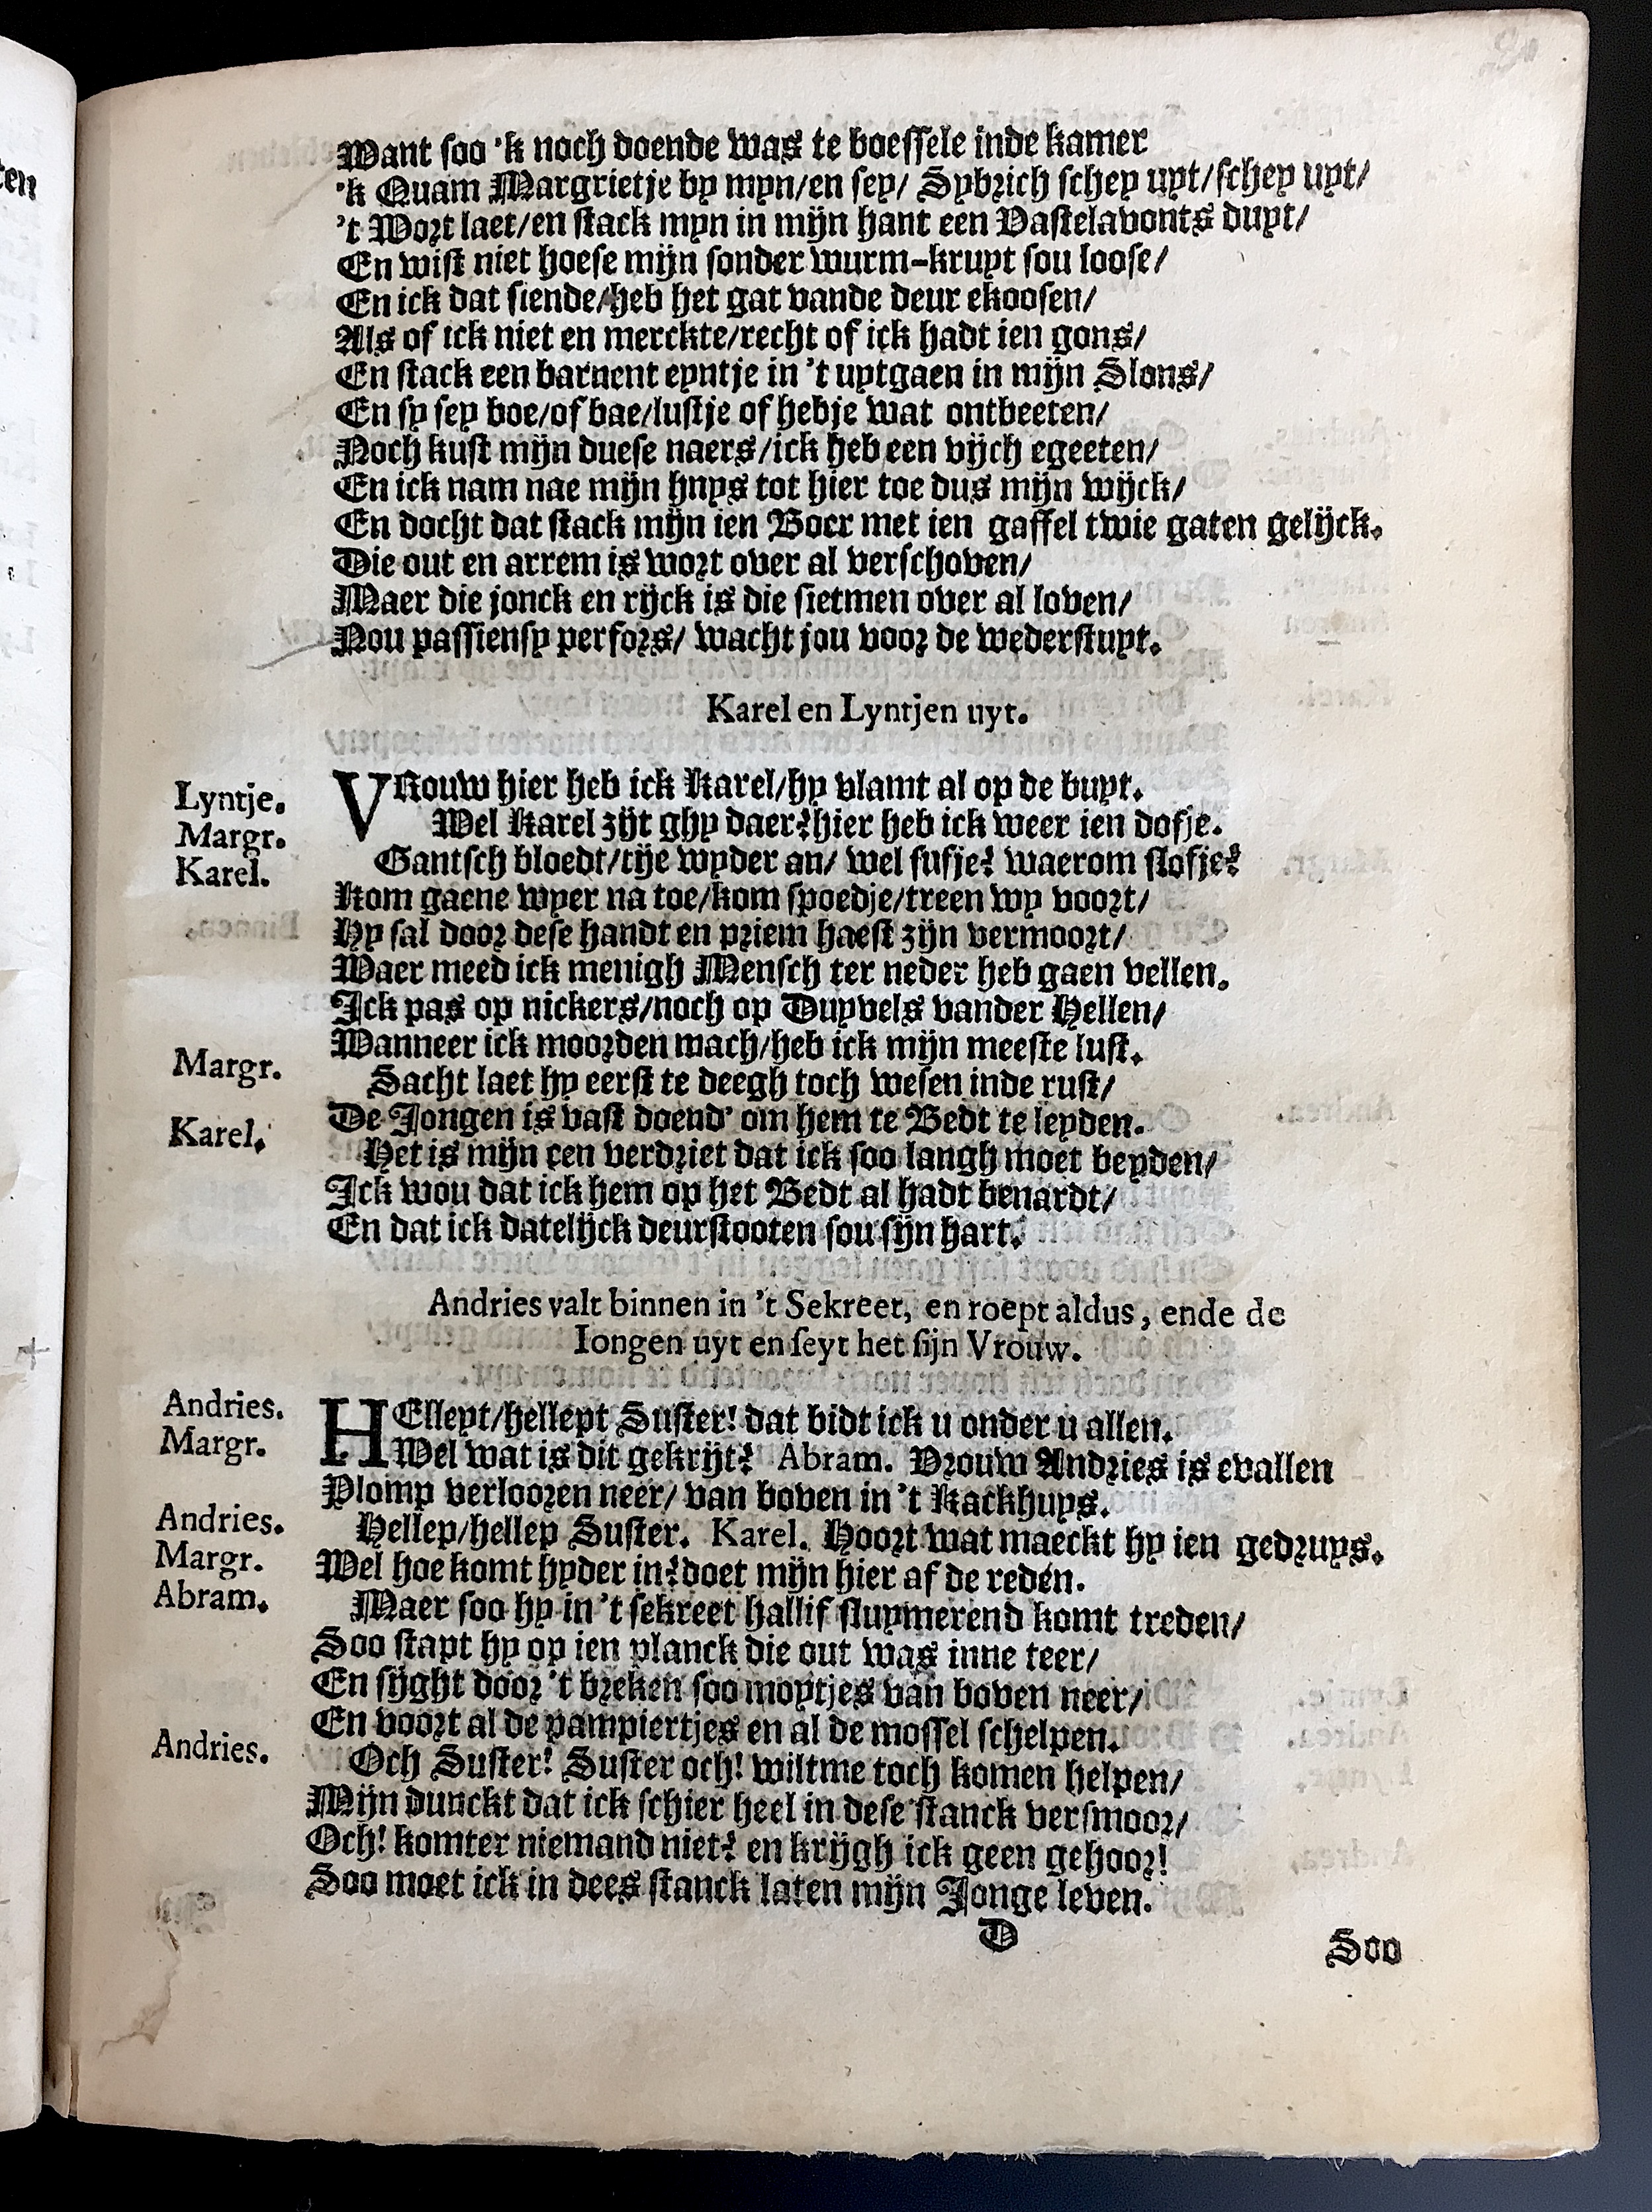 Want soo 'k noch doende was te boessele inde kamer
'k Quam Margrietje by myn/en sey/ Sybrich schey uyt/schey uyt/
't Wort laet/en stack myn in mijn hant een Vastelavonts duyt/
En wist niet hoese mijn sonder wurm-kruyt sou loose/
En ick dat siende/heb het gat vande deur ekoosen/
Als of ick niet en merckte/recht of ick hadt ien gons/
En stack een barnent eyntje in 't uytgaen in mijn Slons/
En sy sey boe/of bae/lustje of hebje wat ontbeeten/
Noch kust mijn duese naers/ick heb een vijch egeeten/
En ick nam nae mijn hnys tot hier toe dus mijn wijck/
En docht dat stack mijn ien Boer met ien gaffel twie gaten gelijck.
Die out en arrem is wort over al verschoven/
Maer die jonck en rijck is die sietmen over al loven/
Nou passiensy perfors/ wacht jou voor de wederstuyt.
Karel en Lyntjen uyt.
Lyntje. VRouw hier heb ick Karel/hy vlamt al op de buyt.
Margr. Wel Karel zijt ghy daer? hier heb ick weer ien dofje.
Karel. Gantsch bloedt/tije wyder an/ wel sufje? waerom slofje?
Kom gaene wyer na toe/kom spoedje/treen wy voort/
Hy sal door dese handt en priem haest zijn vermoort/
Waer meed ick menigh Mensch ter neder heb gaen vellen.
Ick pas op nickers/noch op Duyvels vander Hellen/
Wanneer ick moorden mach/heb ick mijn meeste lust.
Margr. Sacht laet hy eerst te deegh toch wesen inde rust/
De Jongen is vast doend' om hem te Bedt te leyden.
Karel. Het is mijn een verdriet dat ick soo langh moet beyden/
Ick wou dat ick hem op het Bedt al hadt benardt/
En dat ick datelijck deurstooten sou sijn hart.
Andries valt binnen in 't Sekreet, en roept aldus, ende de
Iongen uyt en seyt het sijn Vrouw.
Andries. HEllept/hellept Suster! dat bidt ick u onder u allen.
Margr. Wel wat is dit gekrijt? Abram. Vrouw Andries is evallen
Plomp verlooren neer/ van boven in 't Kackhuys.
Andries. Hellep/hellep Suster. Karel. Hoort wat maeckt hy ien gedruys.
Margr. Wel hoe komt hyder in? doet mijn hier af de reden.
Abram. Maer soo hy in 't sekreet hallif sluymerend komt treden/
Soo stapt hy op ien planck die out was inne teer/
En sijght door 't breken soo moytjes van boven neer/
En voort al de pampiertjes en al de mossel schelpen.
Andries. Och Suster! Suster och! wiltme toch komen helpen/
Mijn dunckt dat ick schier heel in dese stanck versmoor/
Och! komter niemand niet? en krijgh ick geen gehoor!
Soo moet ick in dees stanck laten mijn Jonge leven.
D
Soo